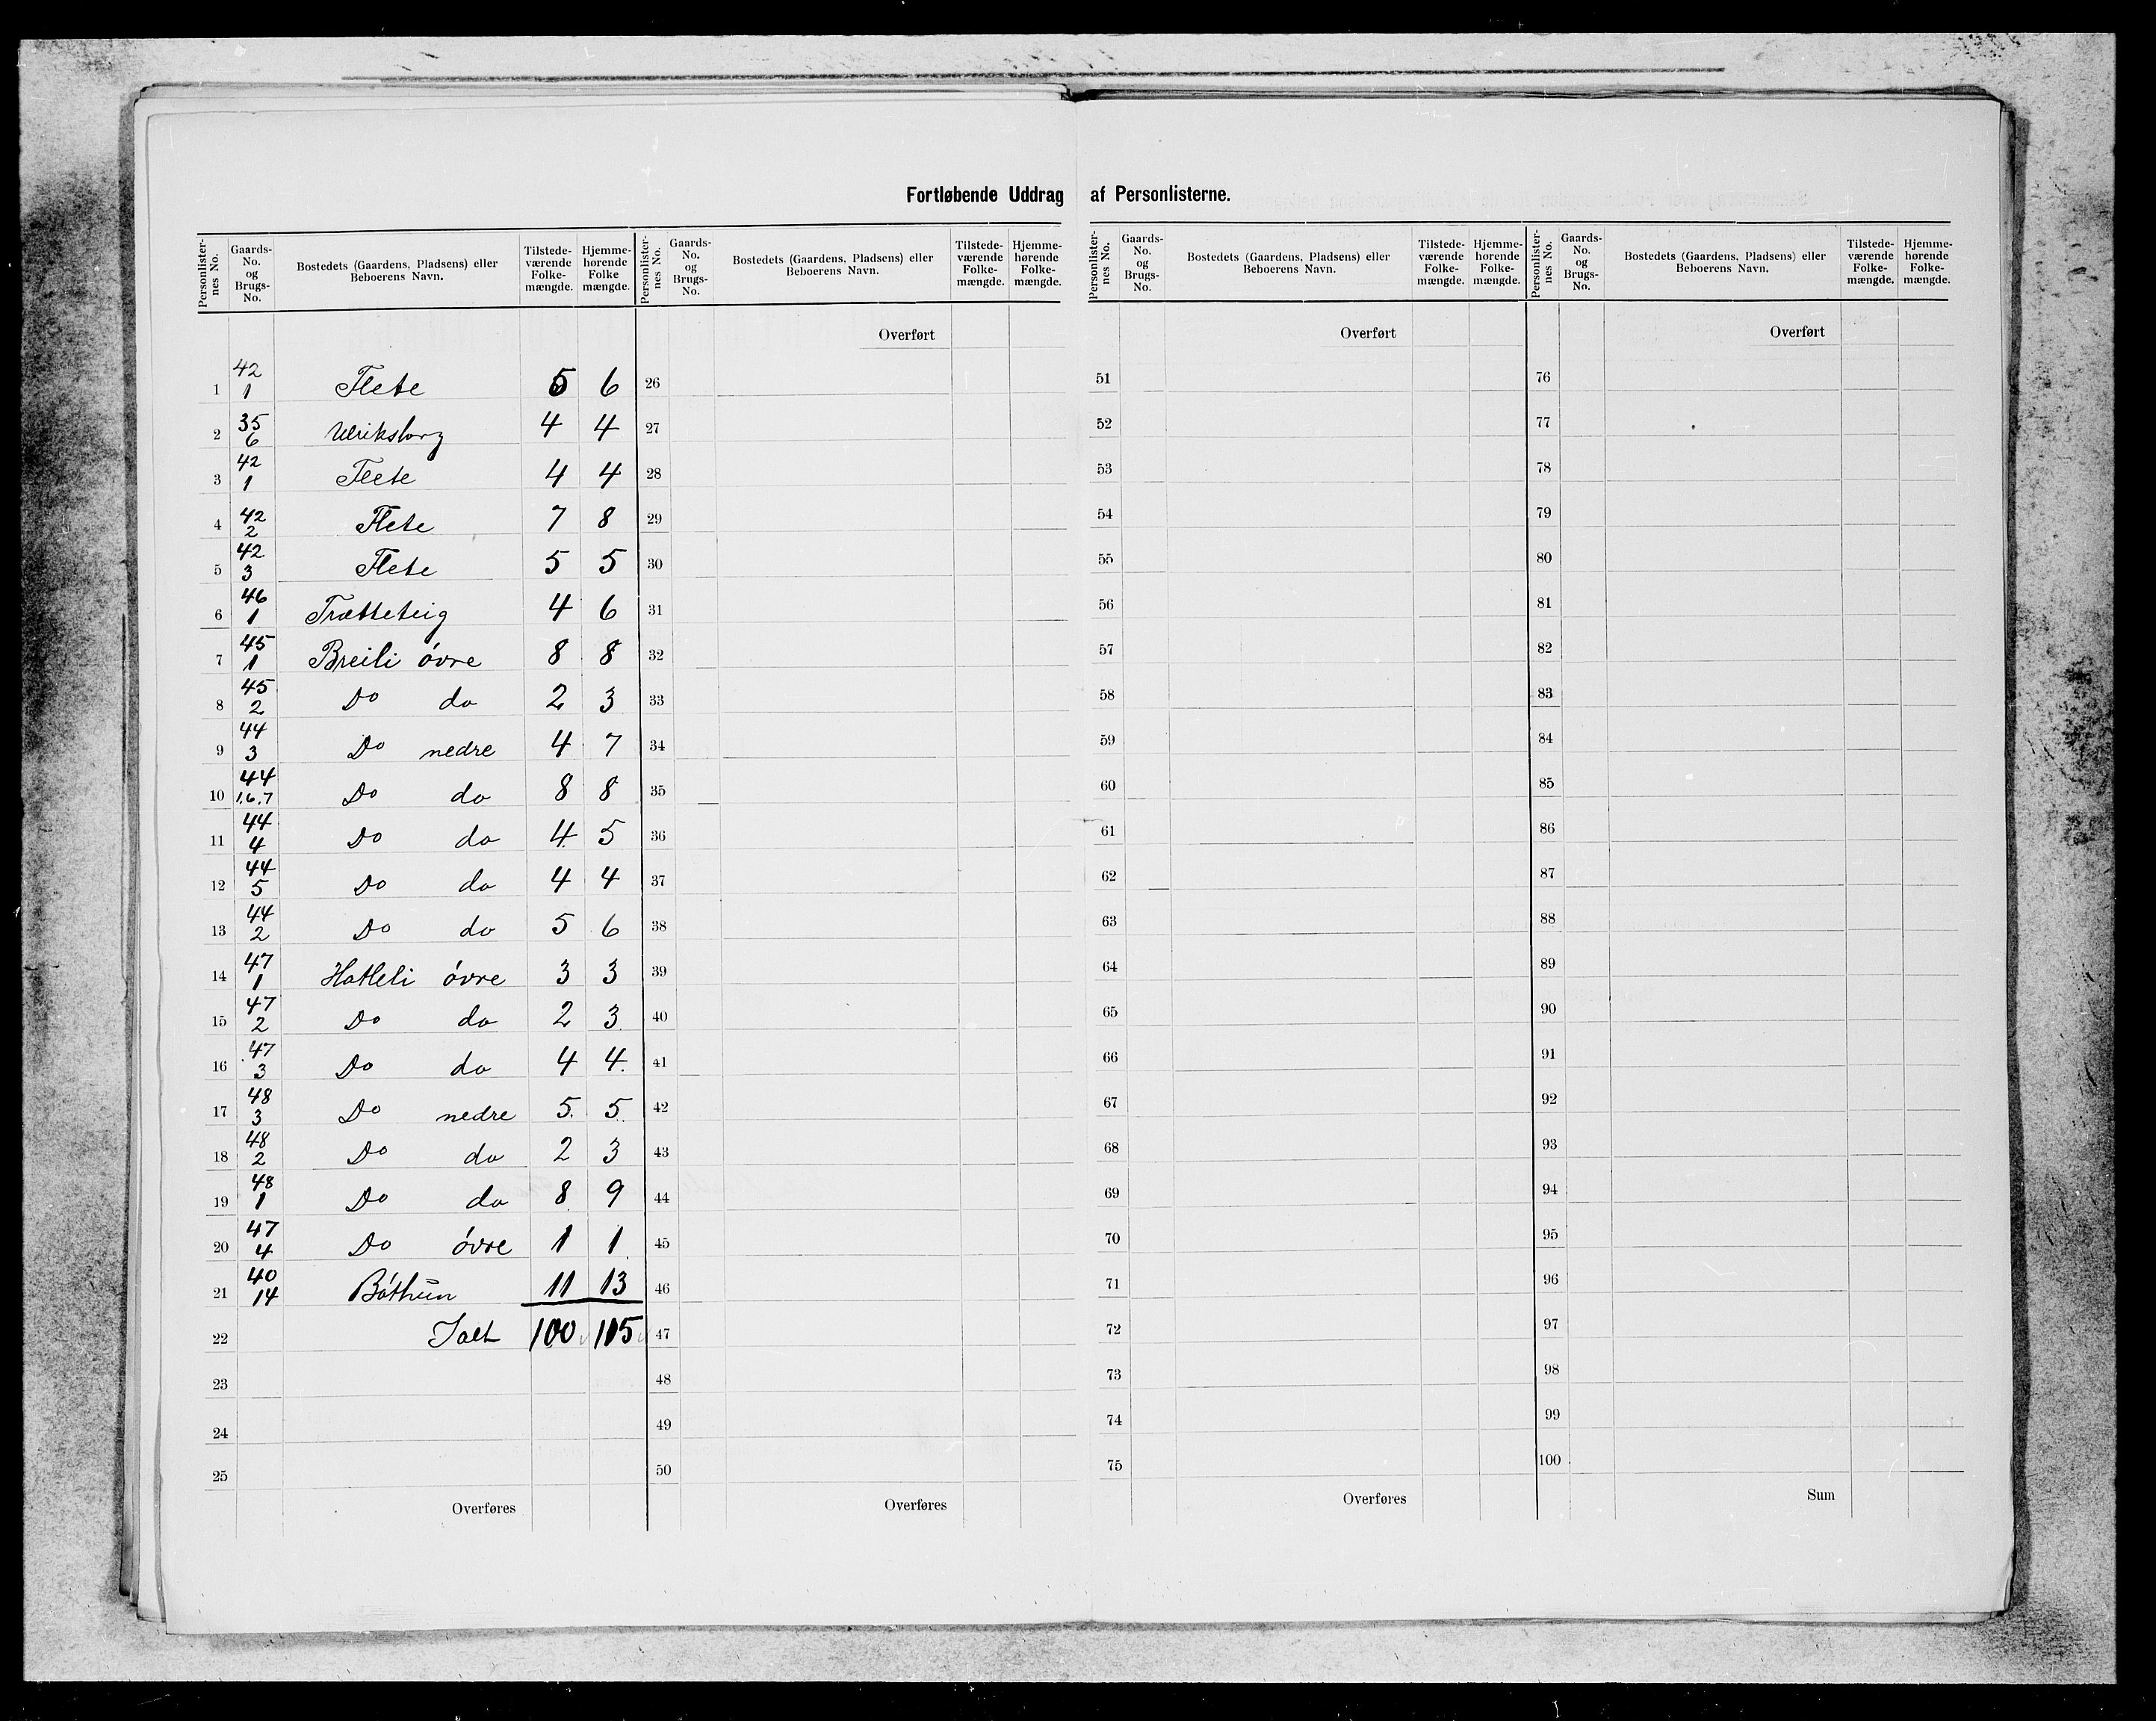 Fortløbende Uddrag af Personlisterne.
Personlisternes No. | Gaards-No. og Brugs-No. | Bostedets (Gaardens, Pladsens) eller Beboerens Navn. | Tilstedeværende Folkemængde. | Hjemmehørende Folkemængde.
1 | 42 1 | Flete | 5 | 6
2 | 35 6 | Ulriksborg | 4 | 4
3 | 42 1 | Flete | 4 | 4
4 | 42 2 | Flete | 7 | 8
5 | 42 3 | Flete | 5 | 5
6 | 46 1 | Trætteteig | 4 | 6
7 | 45 1 | Breili óvre | 8 | 8
8 | 45 2 | Do do | 2 | 3
9 | 44 3 | Do nedre | 4 | 7
10 | 44 1.6.7 | Do do | 8 | 8
11 | 44 4 | Do do | 4 | 5
12 | 44 5 | Do do | 4 | 4
13 | 44 2 | Do do | 5 | 6
14 | 47 1 | Hatleli óvre | 3 | 3
15 | 47 2 | Do do | 2 | 3
16 | 47 3 | Do do | 4 | 4
17 | 48 3 | Do nedre | 5 | 5
18 | 48 2 | Do do | 2 | 3
19 | 48 1 | Do do | 8 | 9
20 | 47 4 | Do óvre | 1 | 1
21 | 40 14 | Bóthun | 11 | 13
22 | Ialt | 100 | 115
23
24
25
Overføres
Personlisternes No. | Gaards-No. og Brugs-No. | Bostedets (Gaardens, Pladsens) eller Beboerens Navn. | Tilstedeværende Folkemængde. | Hjemmehørende Folkemængde.
Overført
26
27
28
29
30
31
32
33
34
35
36
37
38
39
40
41
42
43
44
45
46
47
48
49
50
Overføres
Personlisternes No. | Gaards-No. og Brugs-No. | Bostedets (Gaardens, Pladsens) eller Beboerens Navn. | Tilstedeværende Folkemængde. | Hjemmehørende Folkemængde.
Overført
51
52
53
54
55
56
57
58
59
60
61
62
63
64
65
66
67
68
69
70
71
72
73
74
75
Overføres
Personlisternes No. | Gaards-No. og Brugs-No. | Bostedets (Gaardens, Pladsens) eller Beboerens Navn. | Tilstedeværende Folkemængde. | Hjemmehørende Folkemængde.
Overført
76
77
78
79
80
81
82
83
84
85
86
87
88
89
90
91
92
93
94
95
96
97
98
99
100
Sum